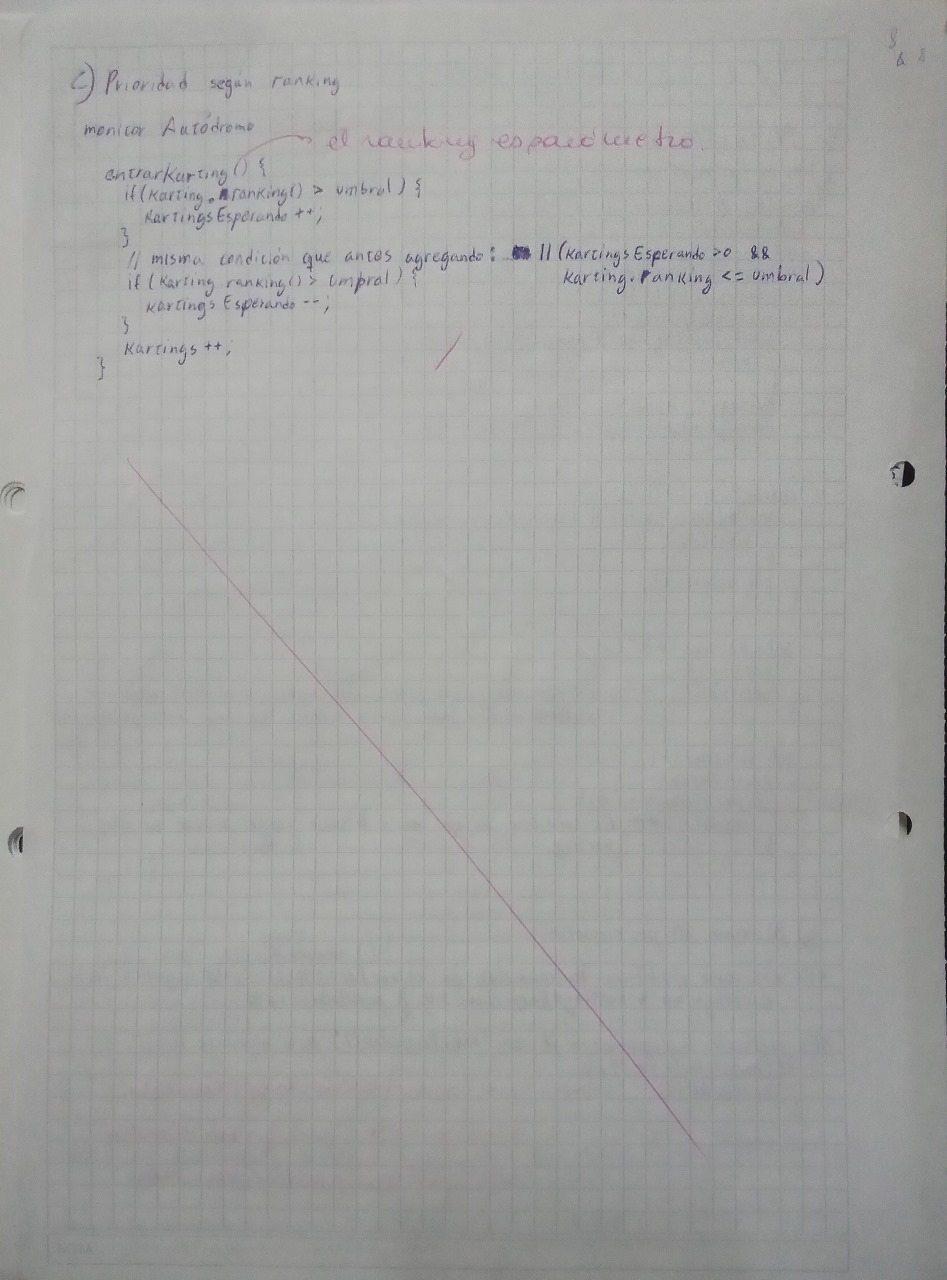 C) Prioridad según ranking
monitor Autódromo
el ranking es parámetro.
entrarKarting() {
if (Karting.ranking() > umbral) {
KartingsEsperando ++;
}
// misma condición que antes agregando: || (KartingsEsperando >0 &&
Karting.ranking <= umbral)
if (Karting.ranking() > umbral) {
Kartings Esperando --;
}
Kartings ++;
}